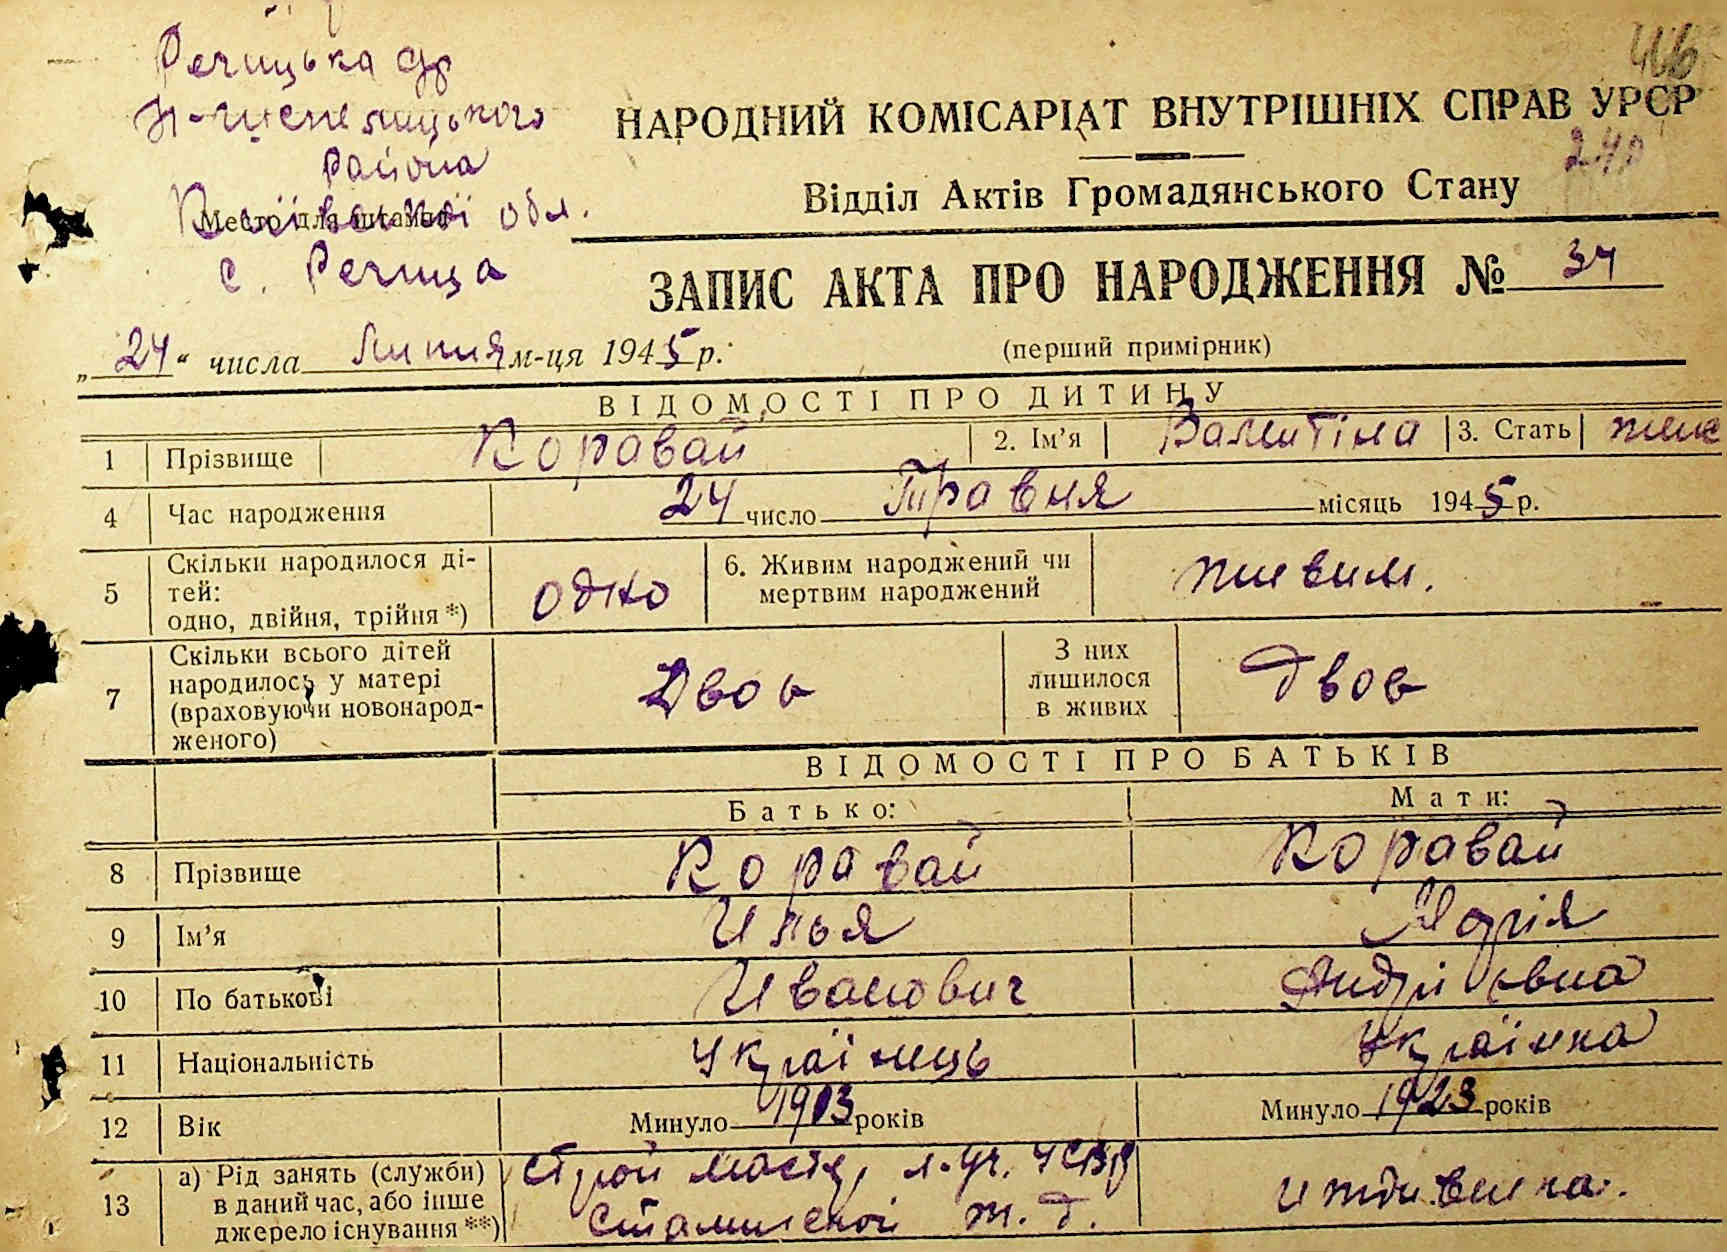 466
Речицька ср
Н-Шепелицького
района
Київської обл.
Место для штампа
с. Речица
НАРОДНИЙ КОМІСАРІАТ ВНУТРІШНІХ СПРАВ УРСР
240
Відділ Актів Громадянського Стану
ЗАПИС АКТА ПРО НАРОДЖЕННЯ № 34
„24“ числа Липня м-ця 1945 р.
(перший примірник)
ВІДОМОСТІ ПРО ДИТИНУ
1 Прізвище Коравай 2. Ім’я Валентіна 3. Стать жик
4 Час народження 24 число Травня місяць 1945 р.
5 Скільки народилося ді-
тей:
одно, двійня, трійня *) одно 6. Живим народжений чи
мертвим народжений живим.
7 Скільки всього дітей
народилось у матері
(враховуючи новонарод-
женого) Двоє З них
лишилося
в живих Двоє
ВІДОМОСТІ ПРО БАТЬКІВ
Батько: Мати:
8 Прізвище Коравай Коравай
9 Ім’я Илья Марія
10 По батькові Иванович Андріївна
11 Національність Українець Українка
12 Вік Минуло 1913 років Минуло 1923 років
13 а) Рід занять (служби)
в даний час, або інше
джерело існування **) Строй ж. д. иждивенка.